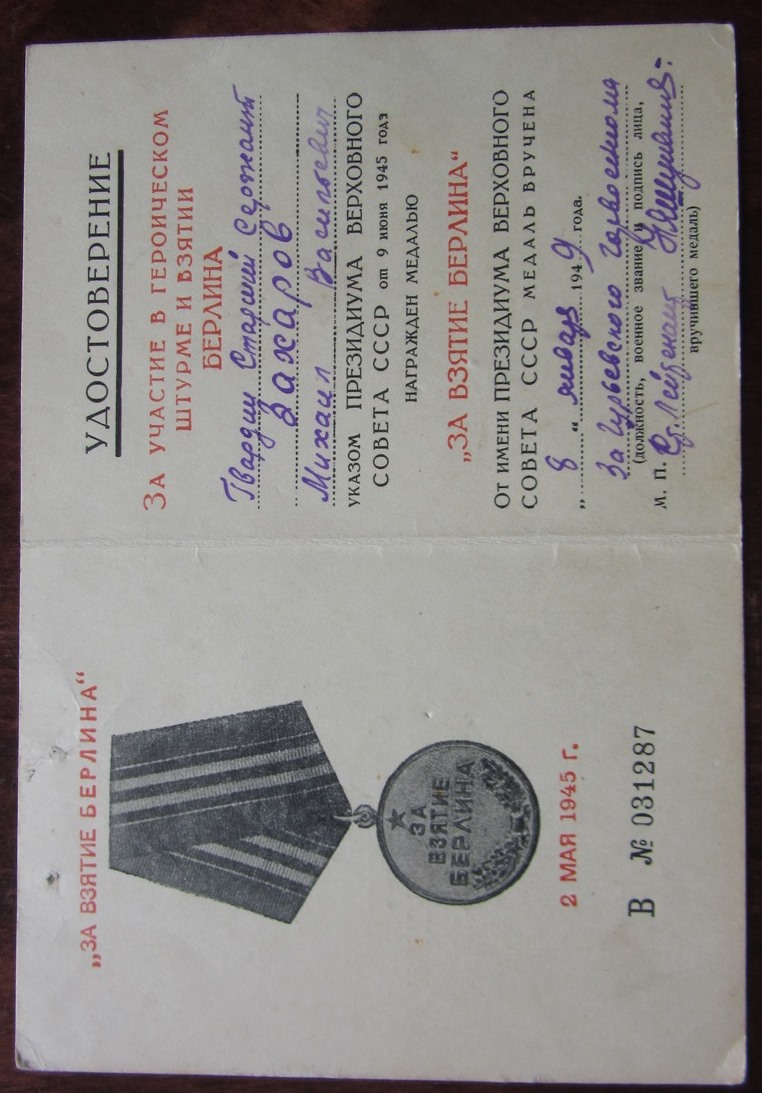 „ЗА ВЗЯТИЕ БЕРЛИНА“
ЗА
ВЗЯТИЕ
БЕРЛИНА
2 МАЯ 1945 г.
В № 031287
УДОСТОВЕРЕНИЕ
ЗА УЧАСТИЕ В ГЕРОИЧЕСКОМ
ШТУРМЕ И ВЗЯТИИ
БЕРЛИНА
Гвардии Старший Сержант
Захаров
Михаил Васильевич
УКАЗОМ ПРЕЗИДИУМА ВЕРХОВНОГО
СОВЕТА СССР от 9 июня 1945 года
НАГРАЖДЕН МЕДАЛЬЮ
„ЗА ВЗЯТИЕ БЕРЛИНА“
ОТ ИМЕНИ ПРЕЗИДИУМА ВЕРХОВНОГО
СОВЕТА СССР МЕДАЛЬ ВРУЧЕНА
„ 8 “ января 1949 года.
За Гурьевского горвоенкома
(должность, военное звание и подпись лица,
М. П. Ст. Лейтенант
вручившего медаль)